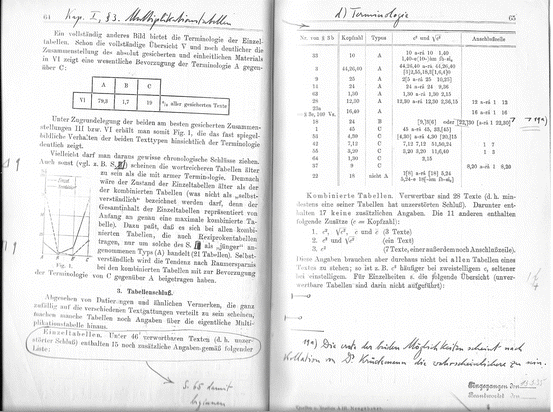 64 Kap. I, § 3. Multiplikationstabellen
Ein vollständig anderes Bild bietet die Terminologie der Einzel-
tabellen. Schon die vollständige Übersicht V und noch deutlicher die
Zusammenstellung der absolut gesicherten und einheitlichen Materials
in VI zeigt eine wesentliche Bevorzugung der Terminologie A gegen-
über C:
A B C
VI 79,3 1,7 19 % aller gesicherten Texte
Unter Zugrundelegung der beiden am besten gesicherten Zusammen-
stellungen III bzw. VI erhält man somit Fig. 1, die das fast spiegel-
bildliche Verhalten der beiden Texttypen hinsichtlich der Terminologie
deutlich zeigt.
Vielleicht darf man daraus gewisse chronologische Schlüsse ziehen.
Auch sonst (vgl. z. B. S. ) scheinen die wortreicheren Tabellen älter
zu sein als die mit armer Terminologie. Demnach
wäre der Zustand der Einzeltabellen älter als der
der kombinierten Tabellen (was nicht als „selbst-
verständlich“ bezeichnet werden darf, denn der
Gesamtinhalt der Einzeltabellen repräsentiert von
Anfang an genau eine maximale kombinierte Ta-
belle). Dazu paßt, daß es sich bei allen kombi-
nierten Tabellen, die auch Reziprokentabellen
tragen, nur um solche des S. als „jünger“ an-
genommenen Typs (A) handelt (21 Tabellen). Selbst-
verständlich wird die Tendenz nach Raumersparnis
bei den kombinierten Tabellen mit zur Bevorzugung
der Terminologie von C gegenüber A beigetragen haben.
Fig. 1.
3. Tabellenschluß.
Abgesehen von Datierungen und ähnlichen Vermerken, die ganz
zufällig auf die verschiedenen Textgattungen verteilt zu sein scheinen,
machen manche Tabellen noch Angaben über die eigentliche Multi-
plikationstabelle hinaus.
Einzeltabellen. Unter 46 verwertbaren Texten (d. h. unzer-
störter Schluß) enthalten 15 noch zusätzliche Angaben gemäß folgender
Liste:
S. 65 damit
beginnen
2) Terminologie 65
Nr. von § 3b Kopfzahl Typus c² und √c² Anschlußzeile
33 10 A 10 a-rá 10 1,40
3 44,26,40 A 44,26,40 a-rá 44,26,40
9 25 A 2[5 a-rá 25 10,25]
14 24 A 24 a-rá 24 9,36
62 1,30 A 1,30 a-rá 1,30 2,15
28 12,30 A 12,30 a-rá 12,30 2,36,15 12 a-rá 1 12
16 A 16 a-rá 1 16
18 24 B
1 45 C 45 a-rá 45, 33,[45]
53 4,30 C
42 7,12 C 7,12 7,12 51,50,24 1 7
55 3,20 C 3,20 3,20 11,6,40 1 3
64 1,30 C 2,15
2 9 C 8,20 a-rá 1 8,20
22 18 nicht A
Kombinierte Tabellen. Verwertbar sind 28 Texte (d. h. min-
destens eine seiner Tabellen hat unzerstörten Schluß). Darunter ent-
halten 17 keine zusätzlichen Angaben. Die 11 anderen enthalten
folgende Zusätze (c = Kopfzahl):
1. c², √c², c und c (3 Texte)
2. c² und √c² (ein Text)
3. c² (7 Texte, einer außerdem noch Anschlußzeile).
Diese Angaben brauchen aber durchaus nicht bei allen Tabellen eines
Textes zu stehen; so ist z. B. c² häufiger bei zweistelligem c, seltener
bei einstelligem. Für Einzelzeilen c die folgende Übersicht (unver-
wertbare Tabellen sind darin nicht aufgeführt):
19a) Die erste der beiden Möglichkeiten scheint nach
Kollation von Dr. Krückmann die wahrscheinlichere zu sein.
Eingegangen den